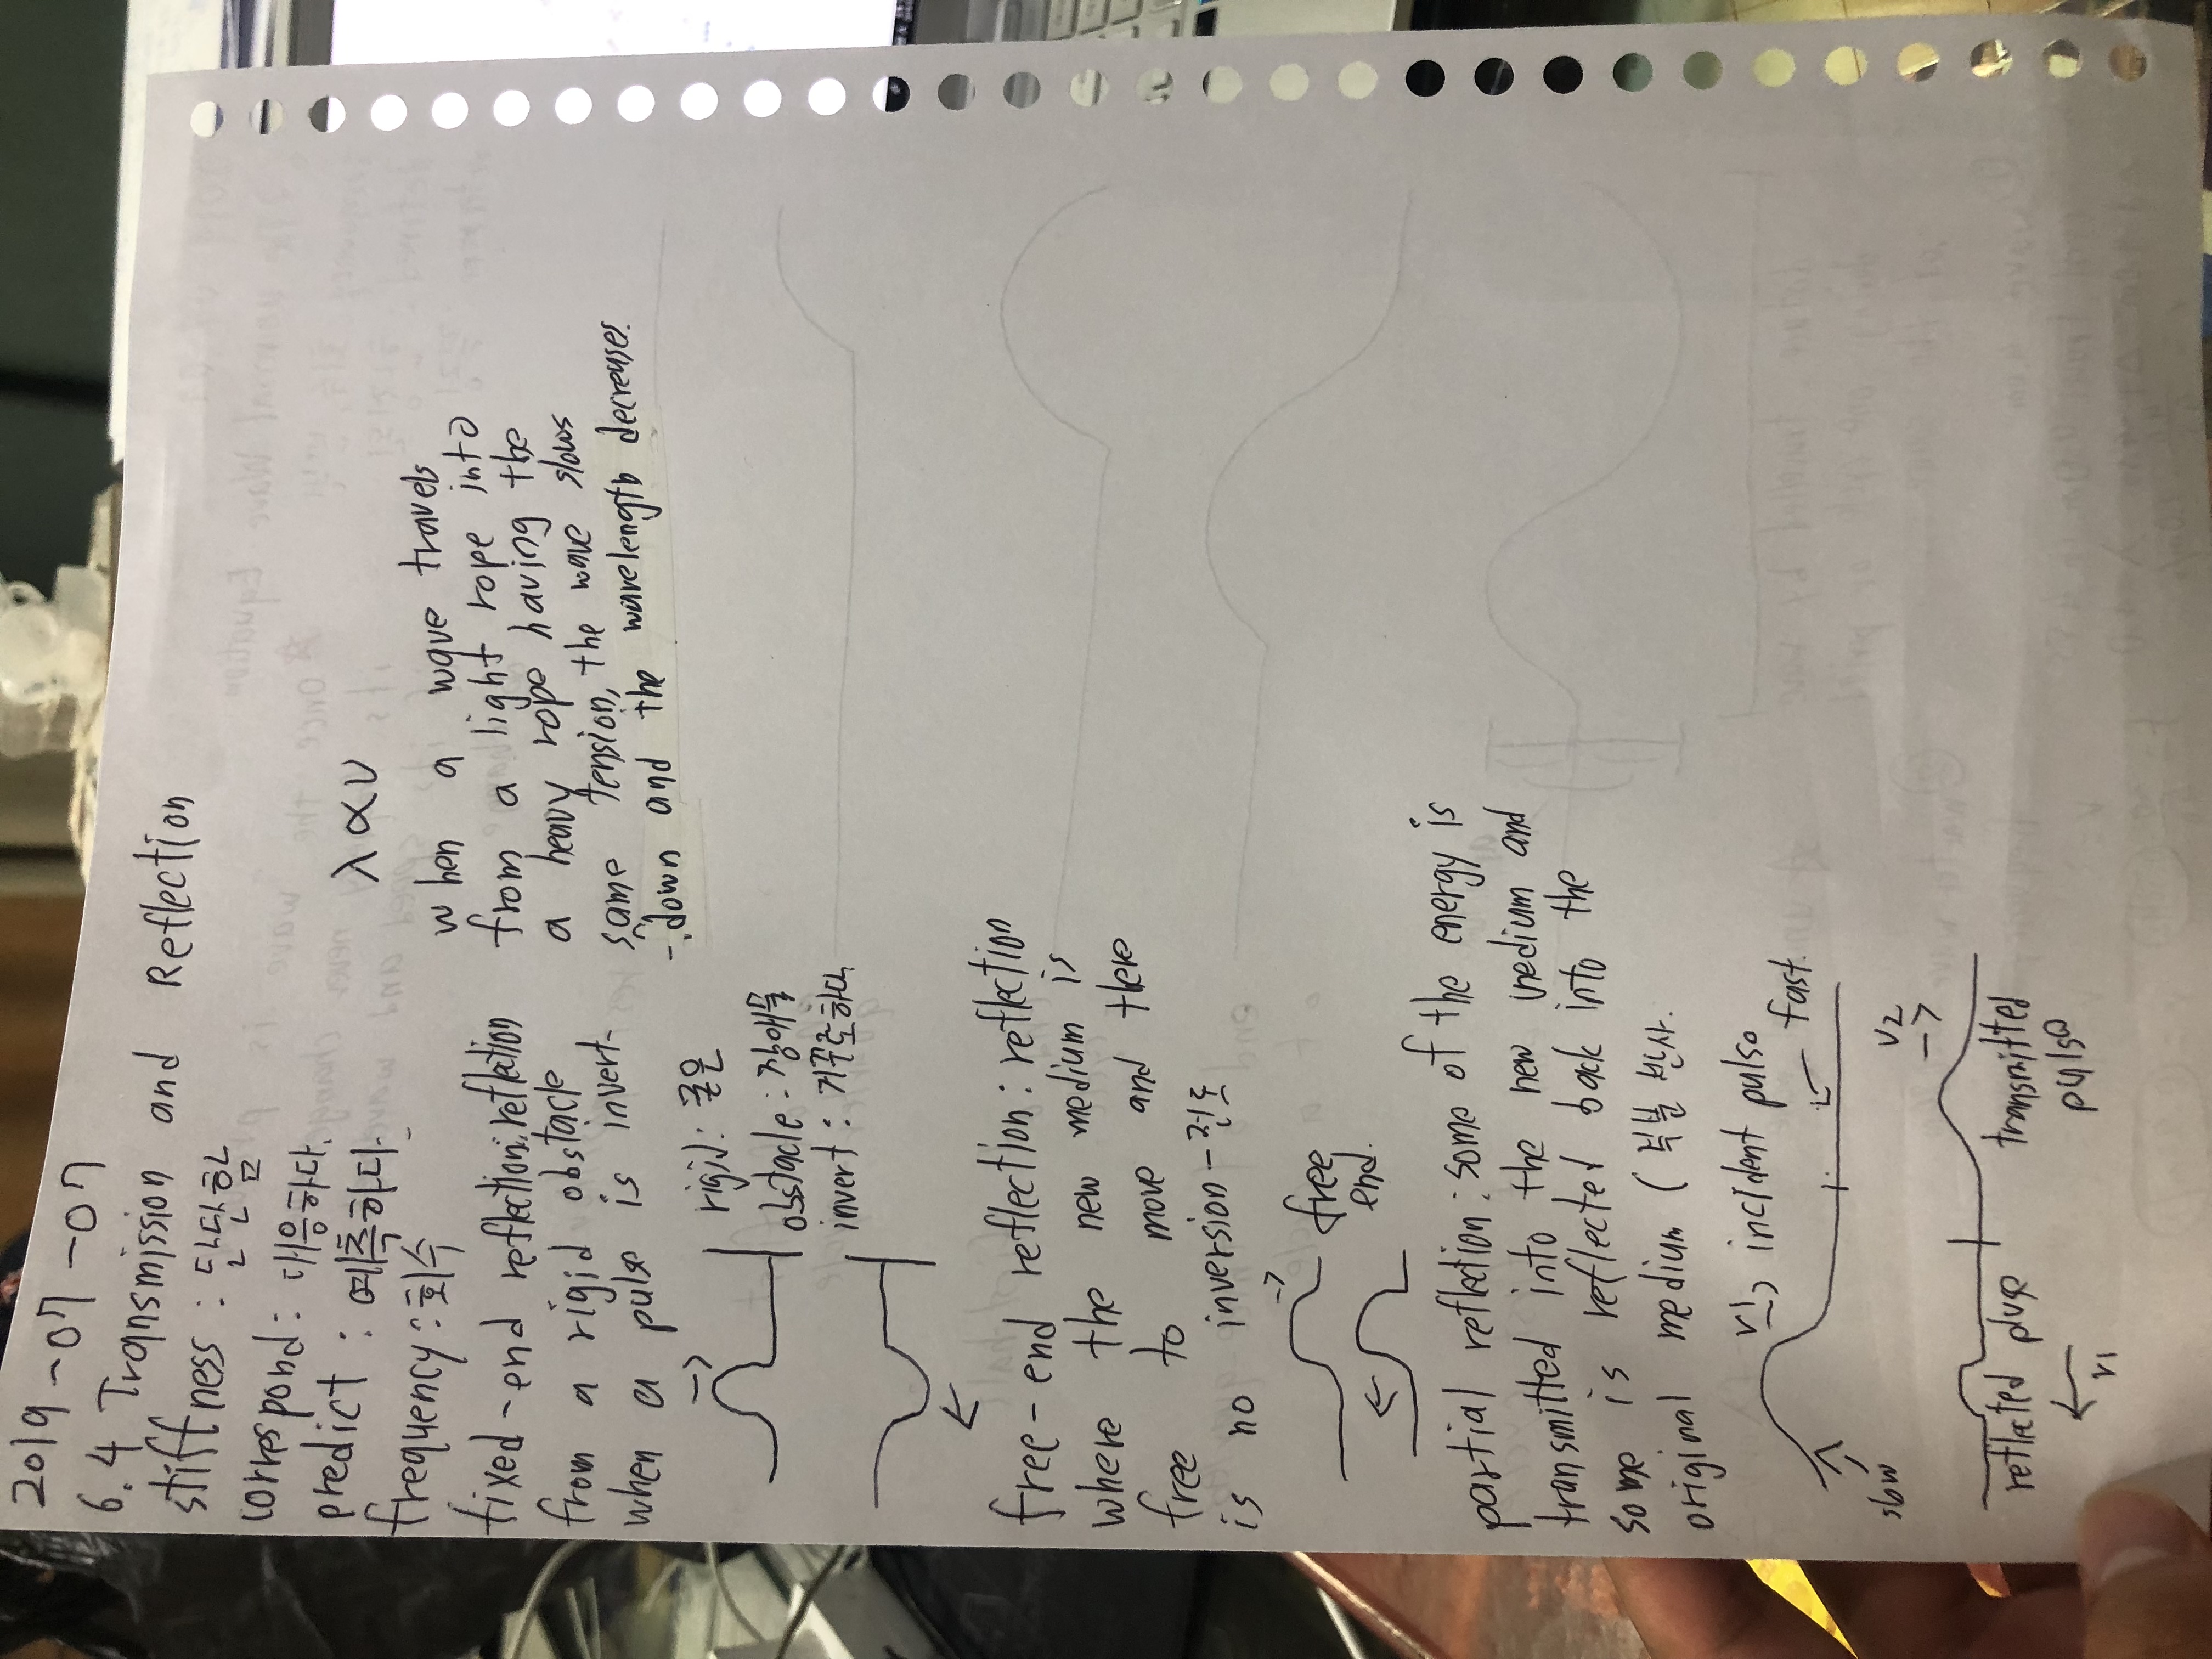 2019-07-07
6.4 Transmission and Reflection
stiffness : 단단함
correspond : 대응하다.
predict : 예측하다.
frequency : 회수
λ ∝ v
when a wave travels
from a light rope into
a heavy rope having the
same tension, the wave slows
down and the wavelength decreases.
fixed-end reflection: reflection
from a rigid obstacle
when a pulse is invert.
rigid : 굳은
obstacle : 장애물
invert : 거꾸로하다.
free-end reflection : reflection
where the new medium is
free to move and there
is no inversion - 전도
free
end.
partial reflection : some of the energy is
transmitted into the new medium and
some is reflected back into the
original medium (부분 반사.
v1
incident pulse
slow
fast.
v2
reflected pluse
v1
transmitted
pulse